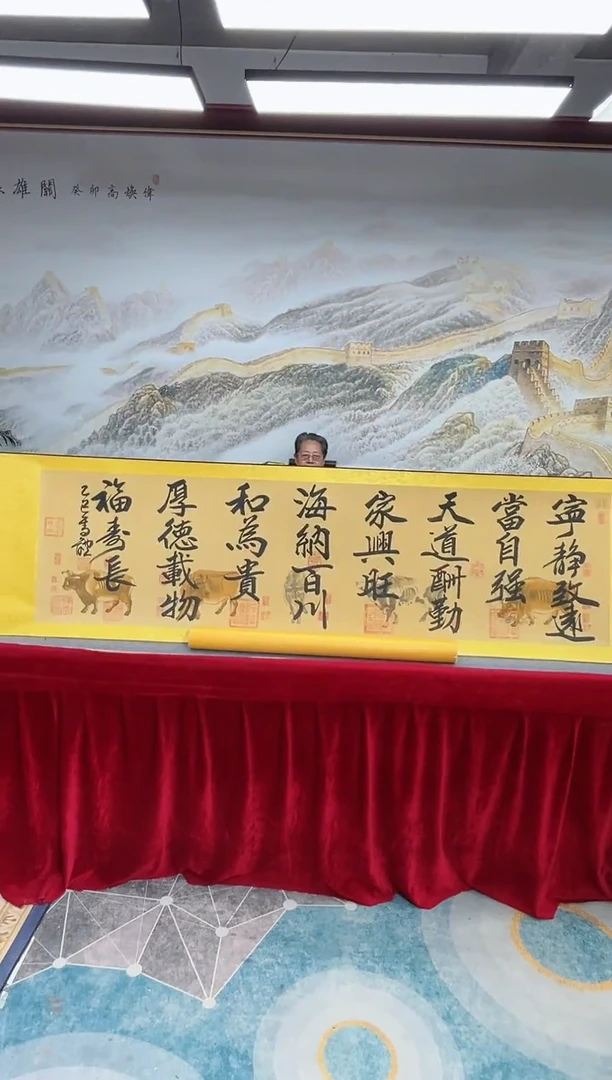 雄關
癸卯高俠偉
寧静致遠
當自强
天道酬勤
家興旺
海納百川
和為貴
厚德載物
福壽長
乙巳